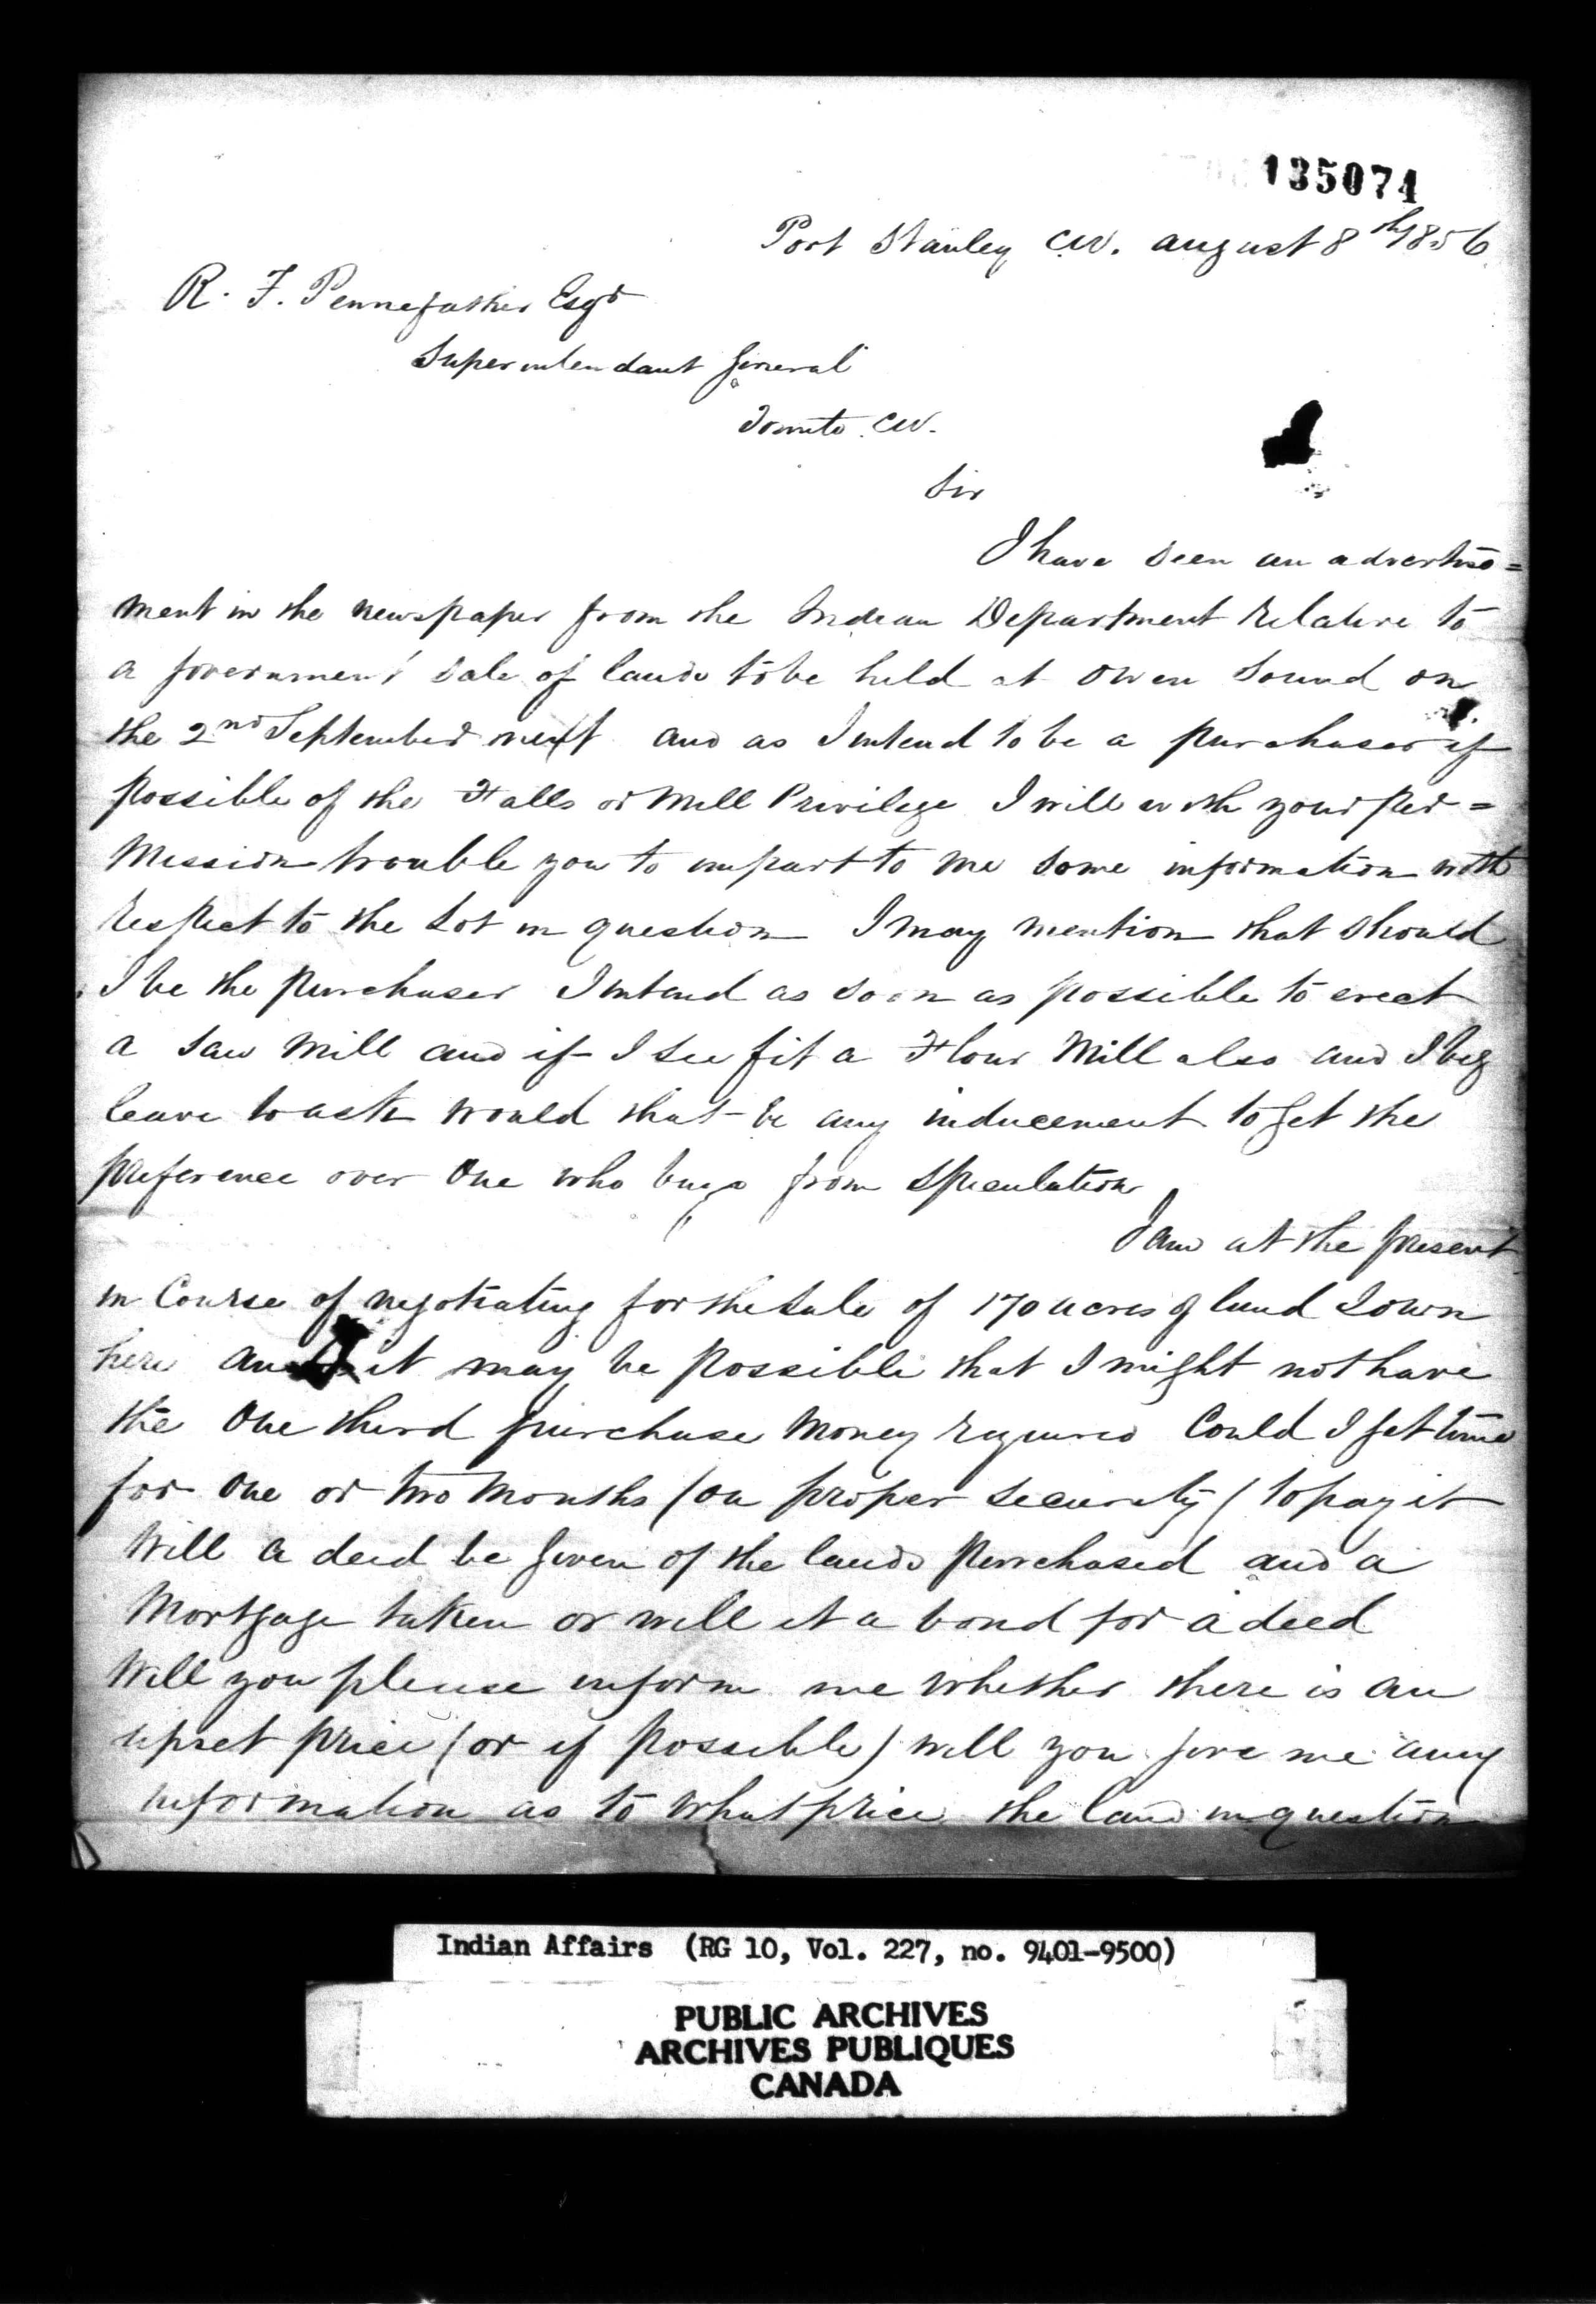 135074
Port Stanley C.W. august 8th 1856
R. F. Pennefather Esqr
Superintendant General
Toronto C.W.
Sir
I have seen an advertise=
ment in the newspaper from the Indian Department relative to
a government sale of lands to be held at Owen Sound on
the 2nd September next and as I intend to be a purchaser if
possible of the Falls or Mill Privilege I will with your per=
mission trouble you to impart to me some information with
respect to the Lot in question I may mention that should
I be the purchaser I intend as soon as possible to erect
a Saw Mill and if I see fit a Flour Mill also and I beg
leave to ask would that be any inducement to get the
preference over One who buys from Speculation
I am at the present
in Course of negotiating for the Sale of 170 acres of land I own
here and it may be possible that I might not have
the One third purchase Money required Could I get time
for One or two Months (on proper security) to pay it
Will a deed be given of the lands purchased and a
Mortgage taken or will it a bond for a deed
Will you please inform me whether there is an
upset price (or if possible) will you give me any
information as to what price the land in question
Indian Affairs (RG 10, Vol. 227, no. 9401-9500)
PUBLIC ARCHIVES
ARCHIVES PUBLIQUES
CANADA